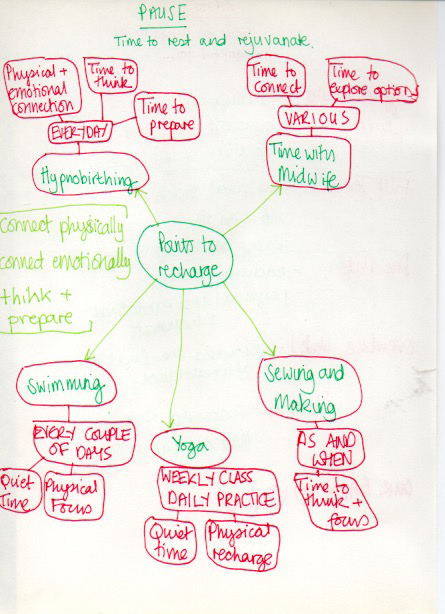 PAUSE
Time to rest and rejuvanate.
Physical +
emotional
connection
Time to
think
Time to
prepare
EVERYDAY
Hypnobirthing
Time to
connect
Time to
explore options
VARIOUS
Time with
Midwife
Connect physically
connect emotionally
think +
prepare
Points to
recharge
Swimming
EVERY COUPLE
OF DAYS
Quiet
Time
Physical
Focus
Yoga
WEEKLY CLASS
DAILY PRACTICE
Quiet
time
Physical
recharge
Sewing and
Making
AS AND
WHEN
Time to
think +
focus